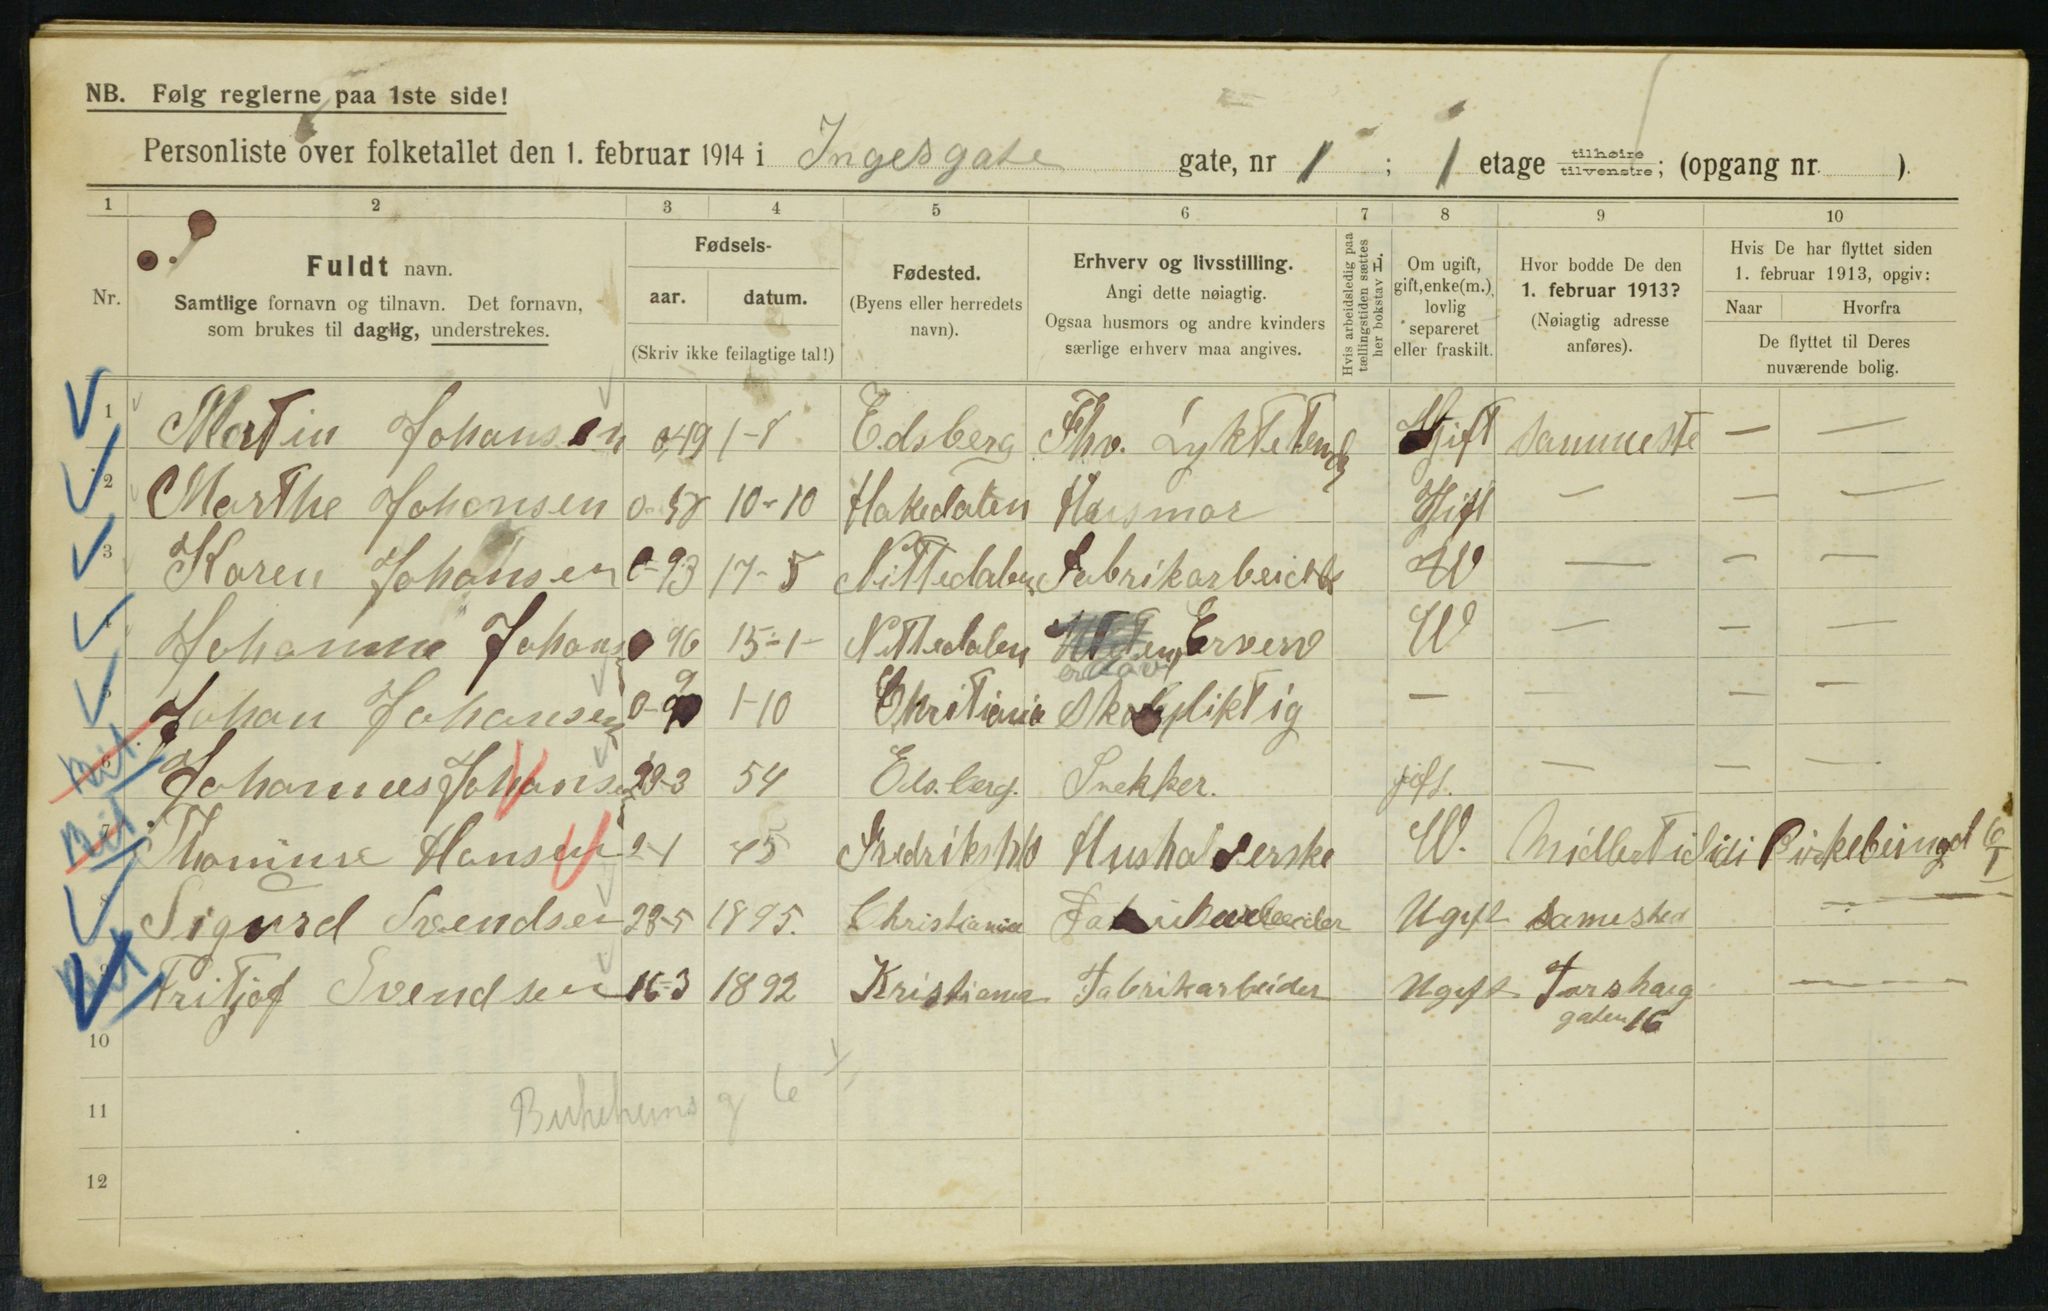 NB. Følg reglerne paa 1ste side!
Personliste over folketallet den 1. februar 1914 i Ingesgate gate, nr 1 ; 1 etage tilhøire tilvenstre; (opgang nr. ).
1 2 3 4 5 6 7 8 9 10
Nr.
Fuldt navn.
Samtlige fornavn og tilnavn. Det fornavn,
som brukes til daglig, understrekes.
Fødsels-
aar. datum.
(Skriv ikke feilagtige tal!)
Fødested.
(Byens eller herredets
navn).
Erhverv og livsstilling.
Angi dette nøiagtig.
Ogsaa husmors og andre kvinders
særlige erhverv maa angives.
Hvis arbeidsledig paa
tællingstiden sættes
her bokstav L.
Om ugift,
gift, enke(m.),
lovlig
separeret
eller fraskilt.
Hvor bodde De den
1. februar 1913?
(Nøiagtig adresse
anføres).
Hvis De har flyttet siden
1. februar 1913, opgiv:
Naar Hvorfra
De flyttet til Deres
nuværende bolig.
1 Martin Johansen 49 1-8 Edsberg Fhv. Lyktetend Gift sammeste — —
2 Marthe Johansen 0-58 10-10 Hakedalen Husmor Gift — — —
3 Karen Johansen 0-93 17-5 Nittedalen Fabrikarbeider W — — —
4 Johanne Johans 96 15-1- Nittedalen Erverv W — — —
5 Johan Johansen 1-10 Chritiania Skolepliktig — — — —
6 Johannes Johansen 23-3 54 Edsberg. Snekker. gift. — — —
7 Thomine Hansen 2-1 45 Fredrikshld Husholderske W. Midlertidi Birkebeinergd 6/I
8 Sigurd Svendsen 23-5 1895. Christiania Fabrikarbeider Ugift samested —
9 Fritjof Svendsen 16-3 1892 Kristiania Fabrikarbeider Ugift Torshaug —
gaten 16
10
11
12